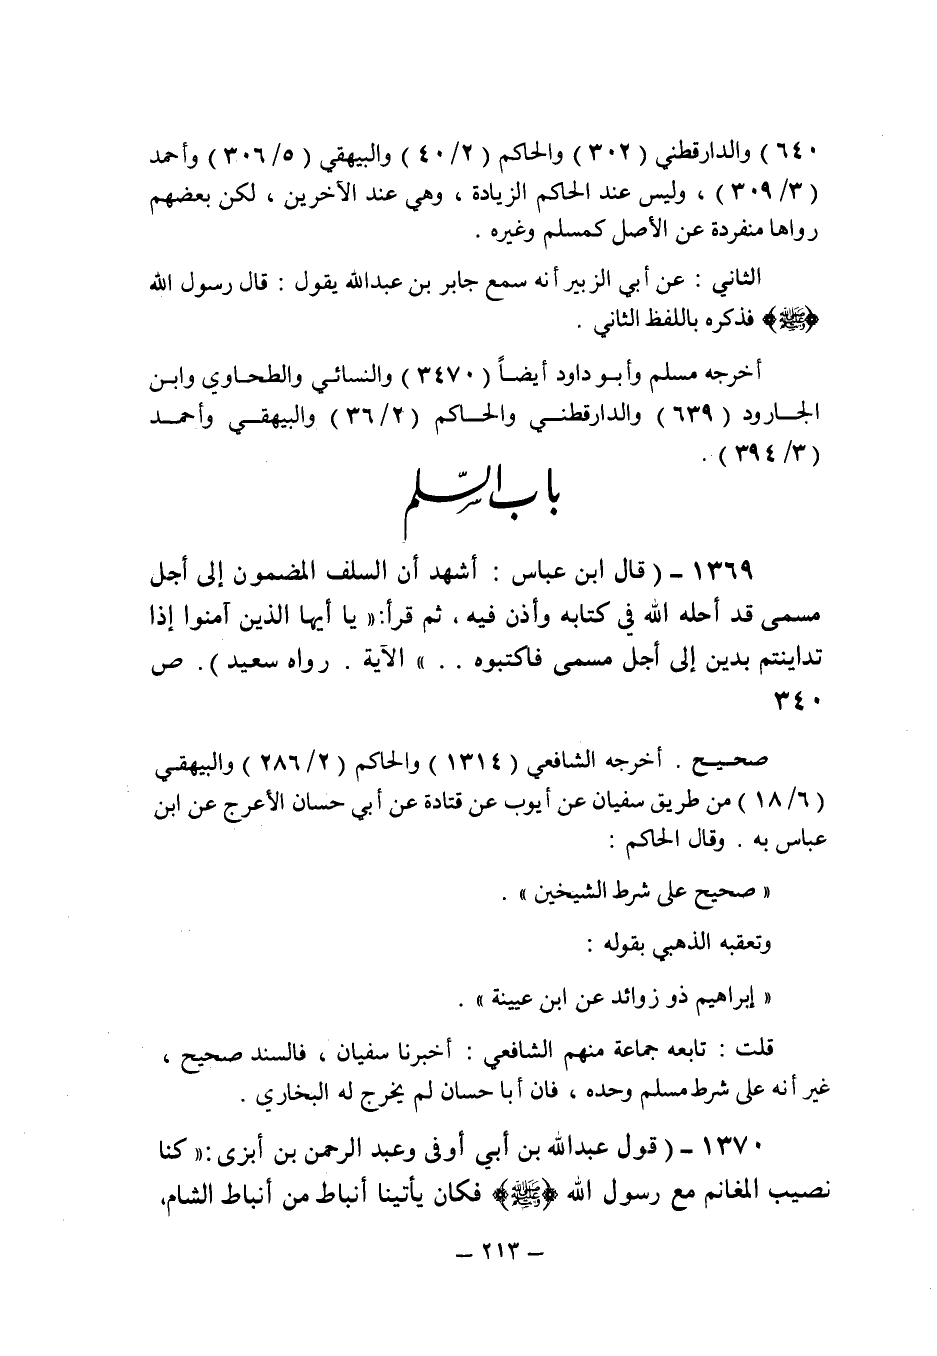 ٦٤٠ ) والدارقطني ( ٣٠٢ ) والحاكم ( ٤٠/٢ ) والبيهقي ( ٣٠٦/٥ ) وأحمد
( ٣٠٩/٣ ) ، وليس عند الحاكم الزيادة ، وهي عند الآخرين ، لكن بعضهم
رواها منفردة عن الأصل كمسلم وغيره .
الثاني : عن أبي الزبير أنه سمع جابر بن عبدالله يقول : قال رسول الله
﴿ﷺ﴾ فذكره باللفظ الثاني .
أخرجه مسلم وأبو داود أيضاً ( ٣٤٧٠ ) والنسائي والطحاوي وابن
الجارود ( ٦٣٩ ) والدارقطني والحاكم ( ٣٦/٢ ) والبيهقي وأحمد
( ٣٩٤/٣ ) .
باب السلم
١٣٦٩ - ( قال ابن عباس : أشهد أن السلف المضمون إلى أجل
مسمى قد أحله الله في كتابه وأذن فيه ، ثم قرأ:« يا أيها الذين آمنوا إذا
تداينتم بدين إلى أجل مسمى فاكتبوه . . » الآية . رواه سعيد ). ص
٣٤٠
صحيح . أخرجه الشافعي ( ١٣١٤ ) والحاكم ( ٢٨٦/٢ ) والبيهقي
( ١٨/٦ ) من طريق سفيان عن أيوب عن قتادة عن أبي حسان الأعرج عن ابن
عباس به . وقال الحاكم :
« صحيح على شرط الشيخين » .
وتعقبه الذهبي بقوله :
« إبراهيم ذو زوائد عن ابن عيينة » .
قلت : تابعه جماعة منهم الشافعي : أخبرنا سفيان ، فالسند صحيح ،
غير أنه على شرط مسلم وحده ، فان أبا حسان لم يخرج له البخاري .
١٣٧٠ - ( قول عبدالله بن أبي أوفى وعبد الرحمن بن أبزى :« كنا
نصيب المغانم مع رسول الله ﴿ﷺ﴾ فكان يأتينا أنباط من أنباط الشام،
- ٢١٣ -